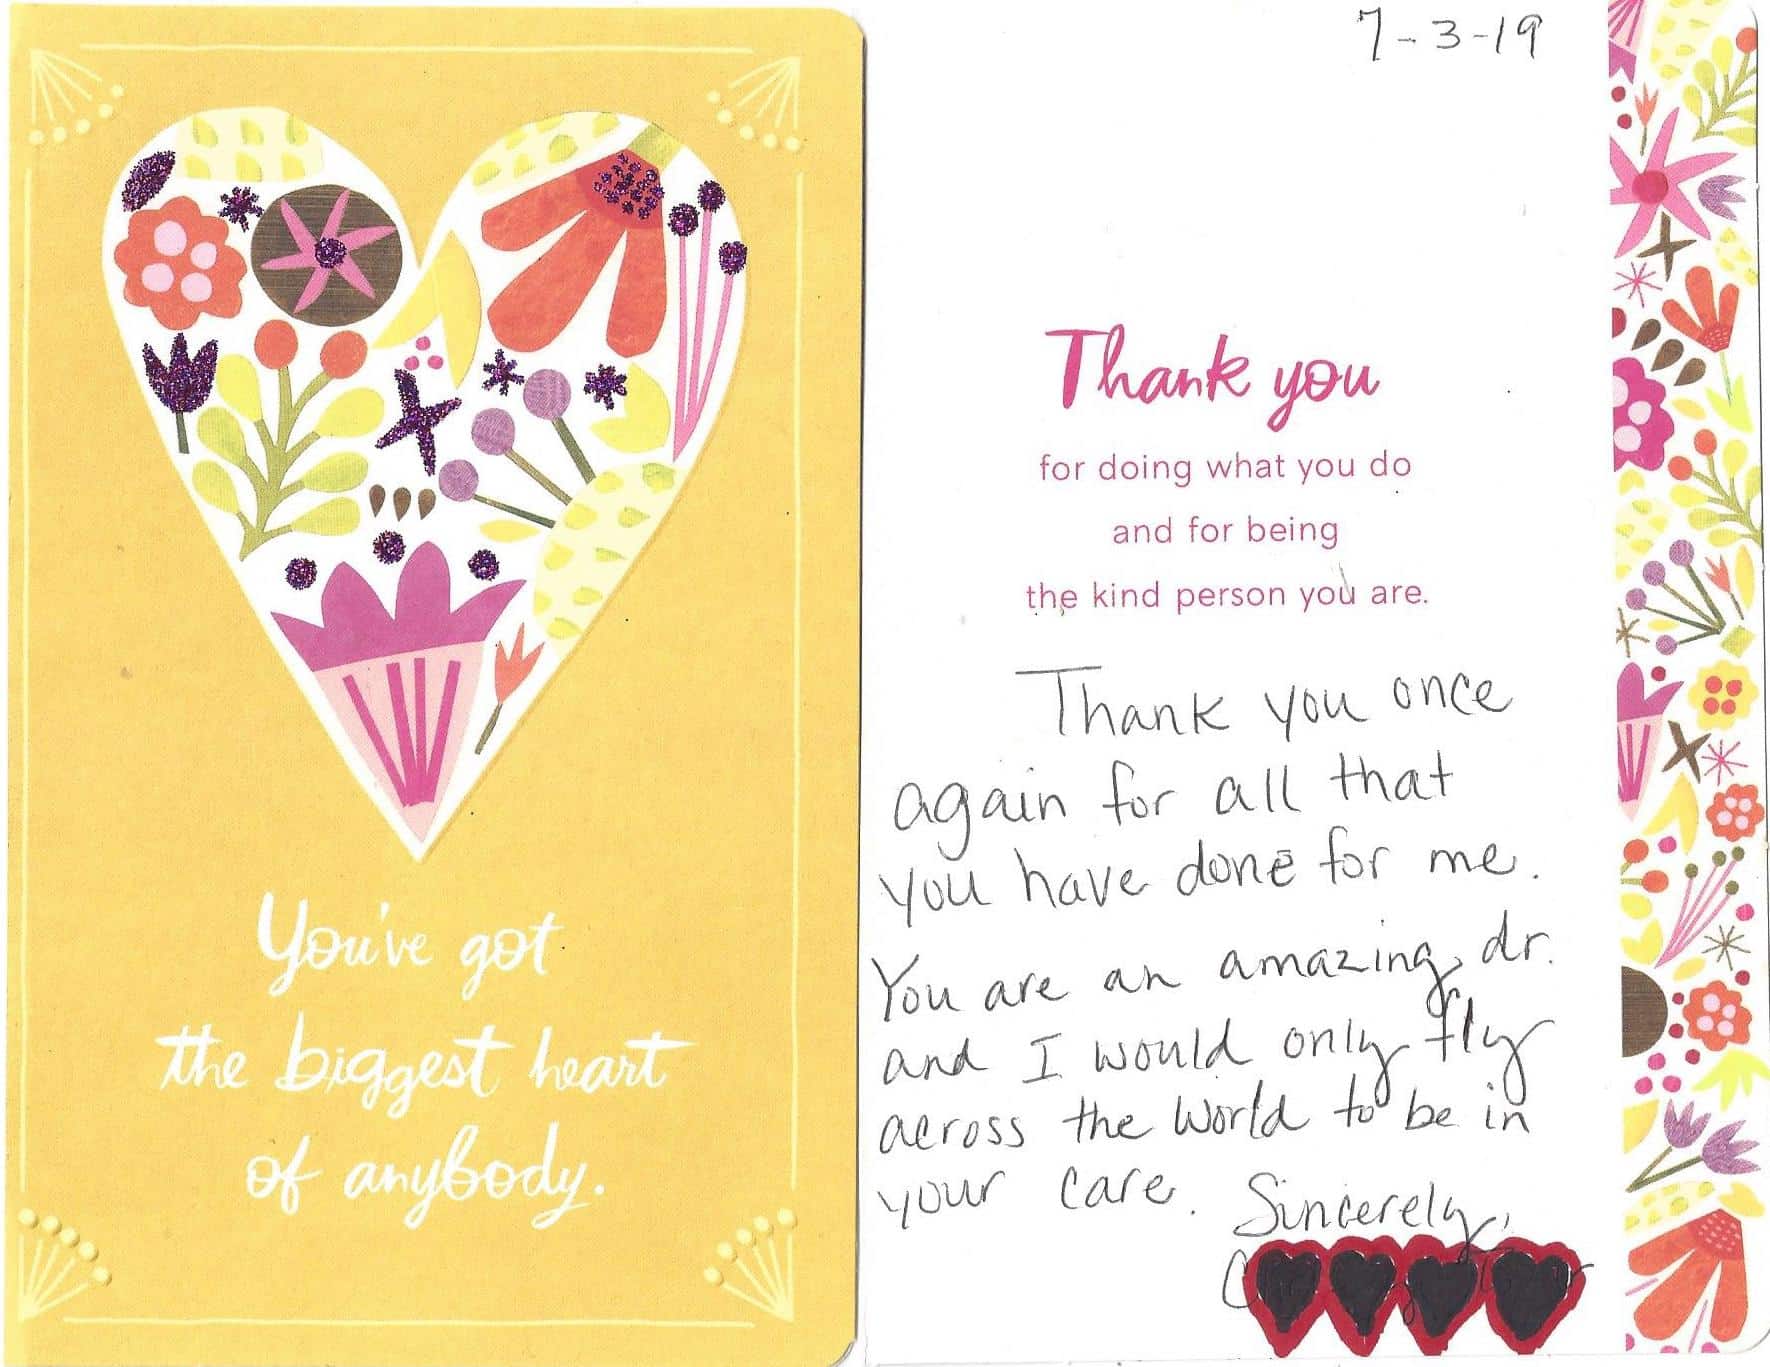 You've got
the biggest heart
of anybody.
7-3-19
Thank you
for doing what you do
and for being
the kind person you are.
Thank you once
again for all that
you have done for me.
You are an amazing dr.
and I would only fly
across the world to be in
your care. Sincerely,